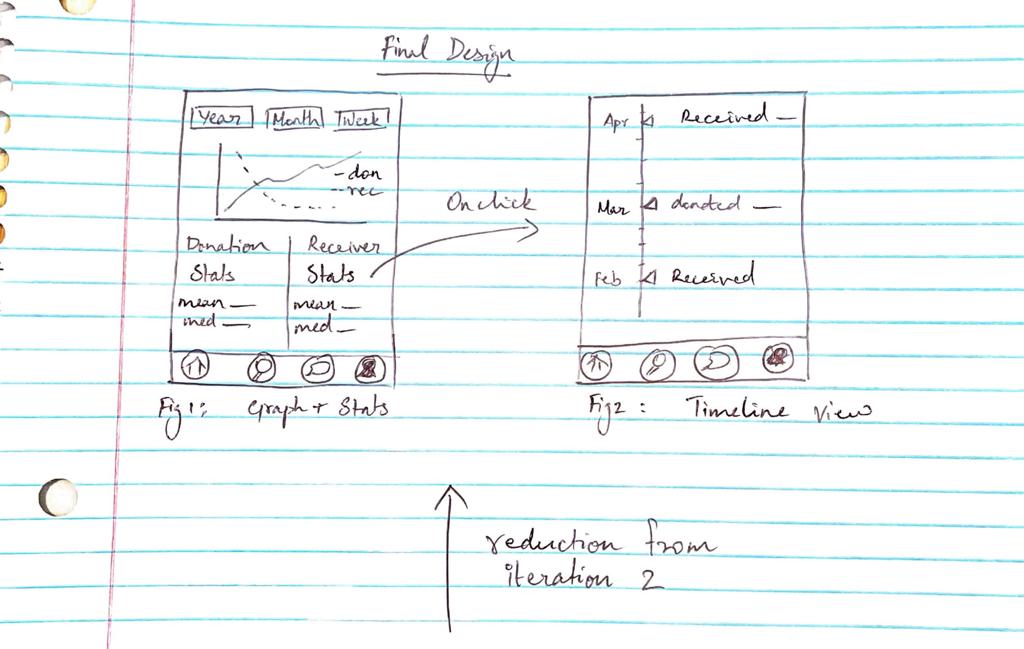 Final Design
Year Month Week
- don
-- rec
Donation Receiver
Stats Stats
mean — mean —
med — med —
Fig 1: Graph + Stats
On click
Apr Received —
Mar donated —
Feb Received
Fig 2: Timeline View
reduction from
iteration 2